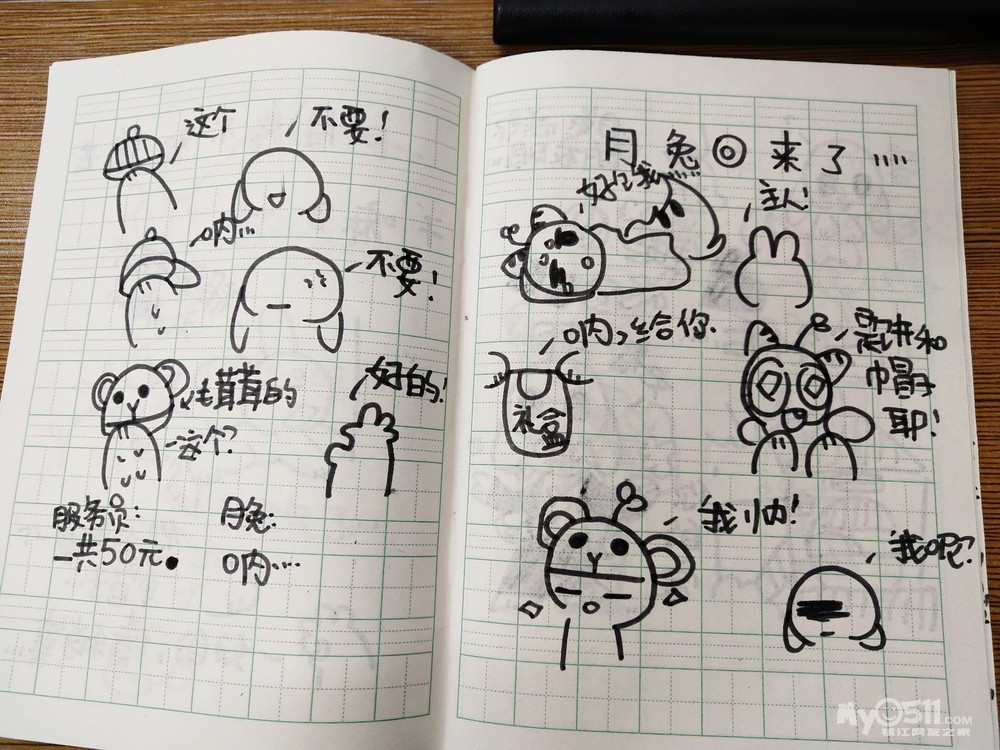 这个
不要！
呐…
不要！
毛茸茸的
这个？
好的！
服务员：
一共50元。
月兔：
呐…
月兔回来了…
好饿
主人！
呐，给你.
礼盒
眼睛和
帽子
耶！
我帅！
我呢？
My0511.COM
镇江网友之家